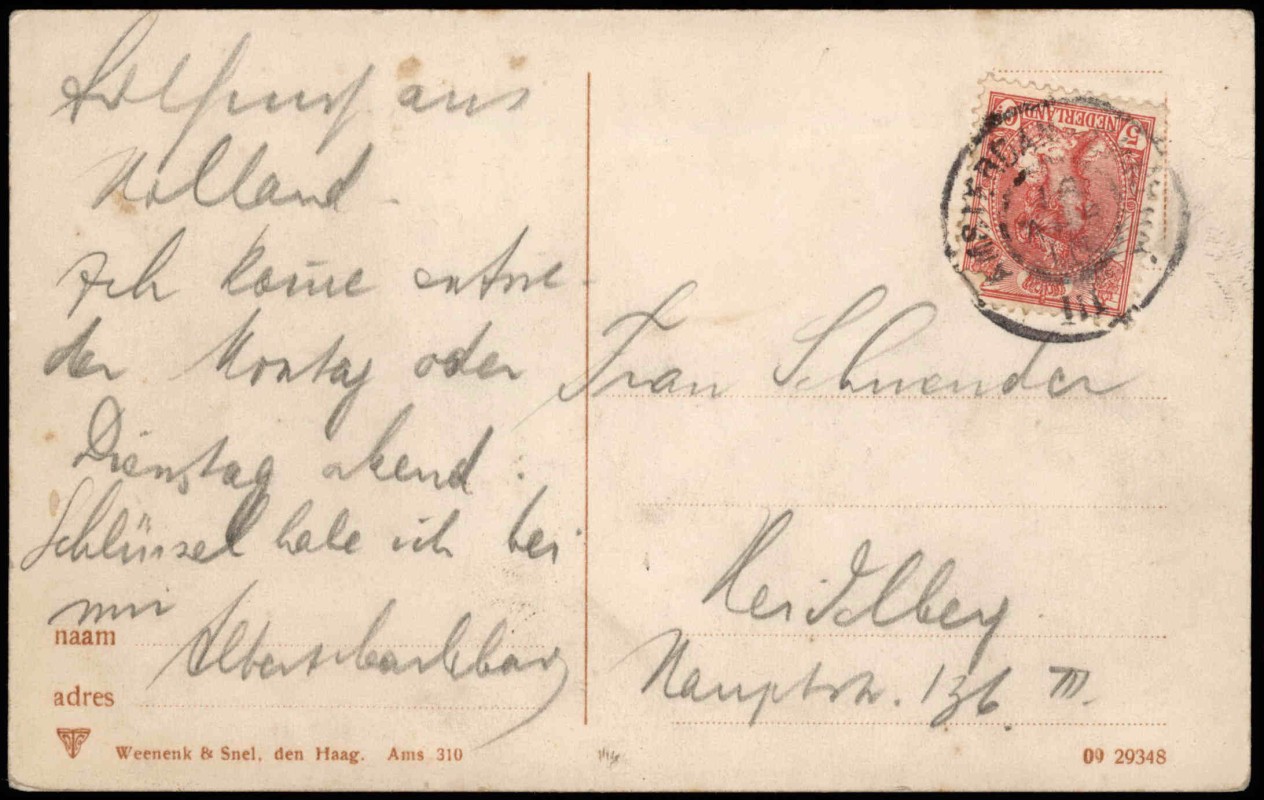 aus
Holland.
Ich komme entwe-
der Montag oder
Dienstag abend.
Schlüssel habe ich bei
mir
naam
adres
Weenenk & Snel, den Haag. Ams 310
NEDERLAND
5
AMSTERDAM
Frau Schwender
Heidelberg
Hauptstr. 136 III.
09 29348